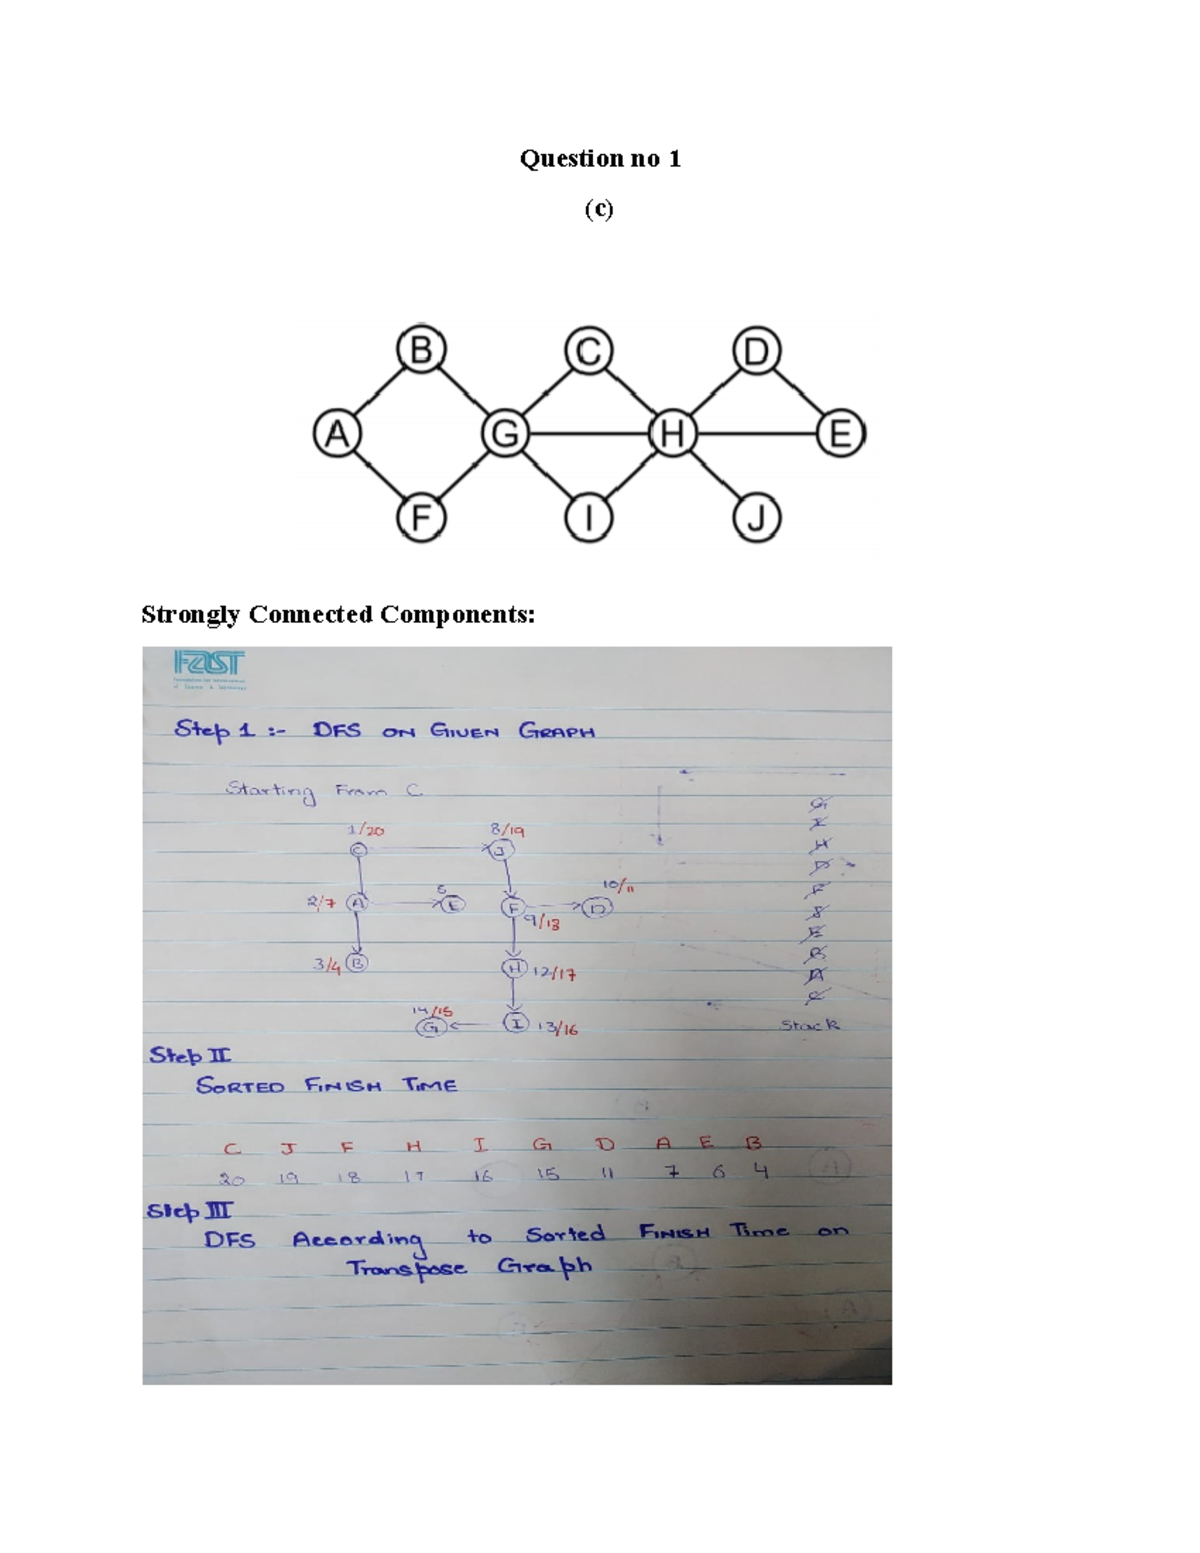 Question no 1
(c)
B C D
A G H E
F I J
Strongly Connected Components:
FAST
Step 1 :- DFS ON GIVEN GRAPH
Starting From C
1/20 8/19
C J
10/11
2/7 A E F D
9/18
3/4 B H 12/17
14/15
G I 13/16
Stack
Step II
SORTED FINISH TIME
C J F H I G D A E B
20 19 18 17 16 15 11 7 6 4
Step III
DFS According to Sorted FINISH Time on
Transpose Graph